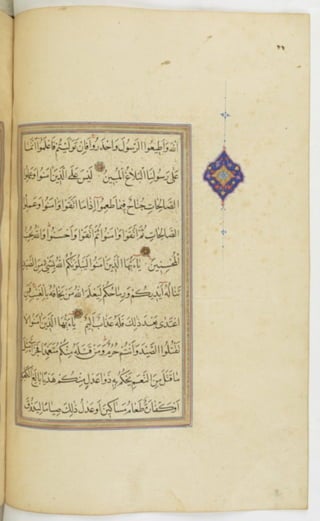 ٢٢
الله واطيعوا الرسول واحذروا فان توليتم فاعلموا انما
على رسولنا البلاغ المبين ليس على الذين امنوا وعملوا
الصالحات جناح فيما طعموا اذا ما اتقوا وامنوا وعملوا
الصالحات ثم اتقوا وامنوا ثم اتقوا واحسنوا والله يحب
المحسنين ياءيها الذين امنوا ليبلونكم الله بشيء من الصيد
تناله ايديكم ورماحكم ليعلم الله من يخافه بالغيب فمن
اعتدى بعد ذلك فله عذاب اليم ياءيها الذين امنوا لا
تقتلوا الصيد وانتم حرم ومن قتله منكم متعمدا فجزاء مثل
ما قتل من النعم يحكم به ذوا عدل منكم هديا بالغ الكعبة
او كفارة طعام مساكين او عدل ذلك صياما ليذوق